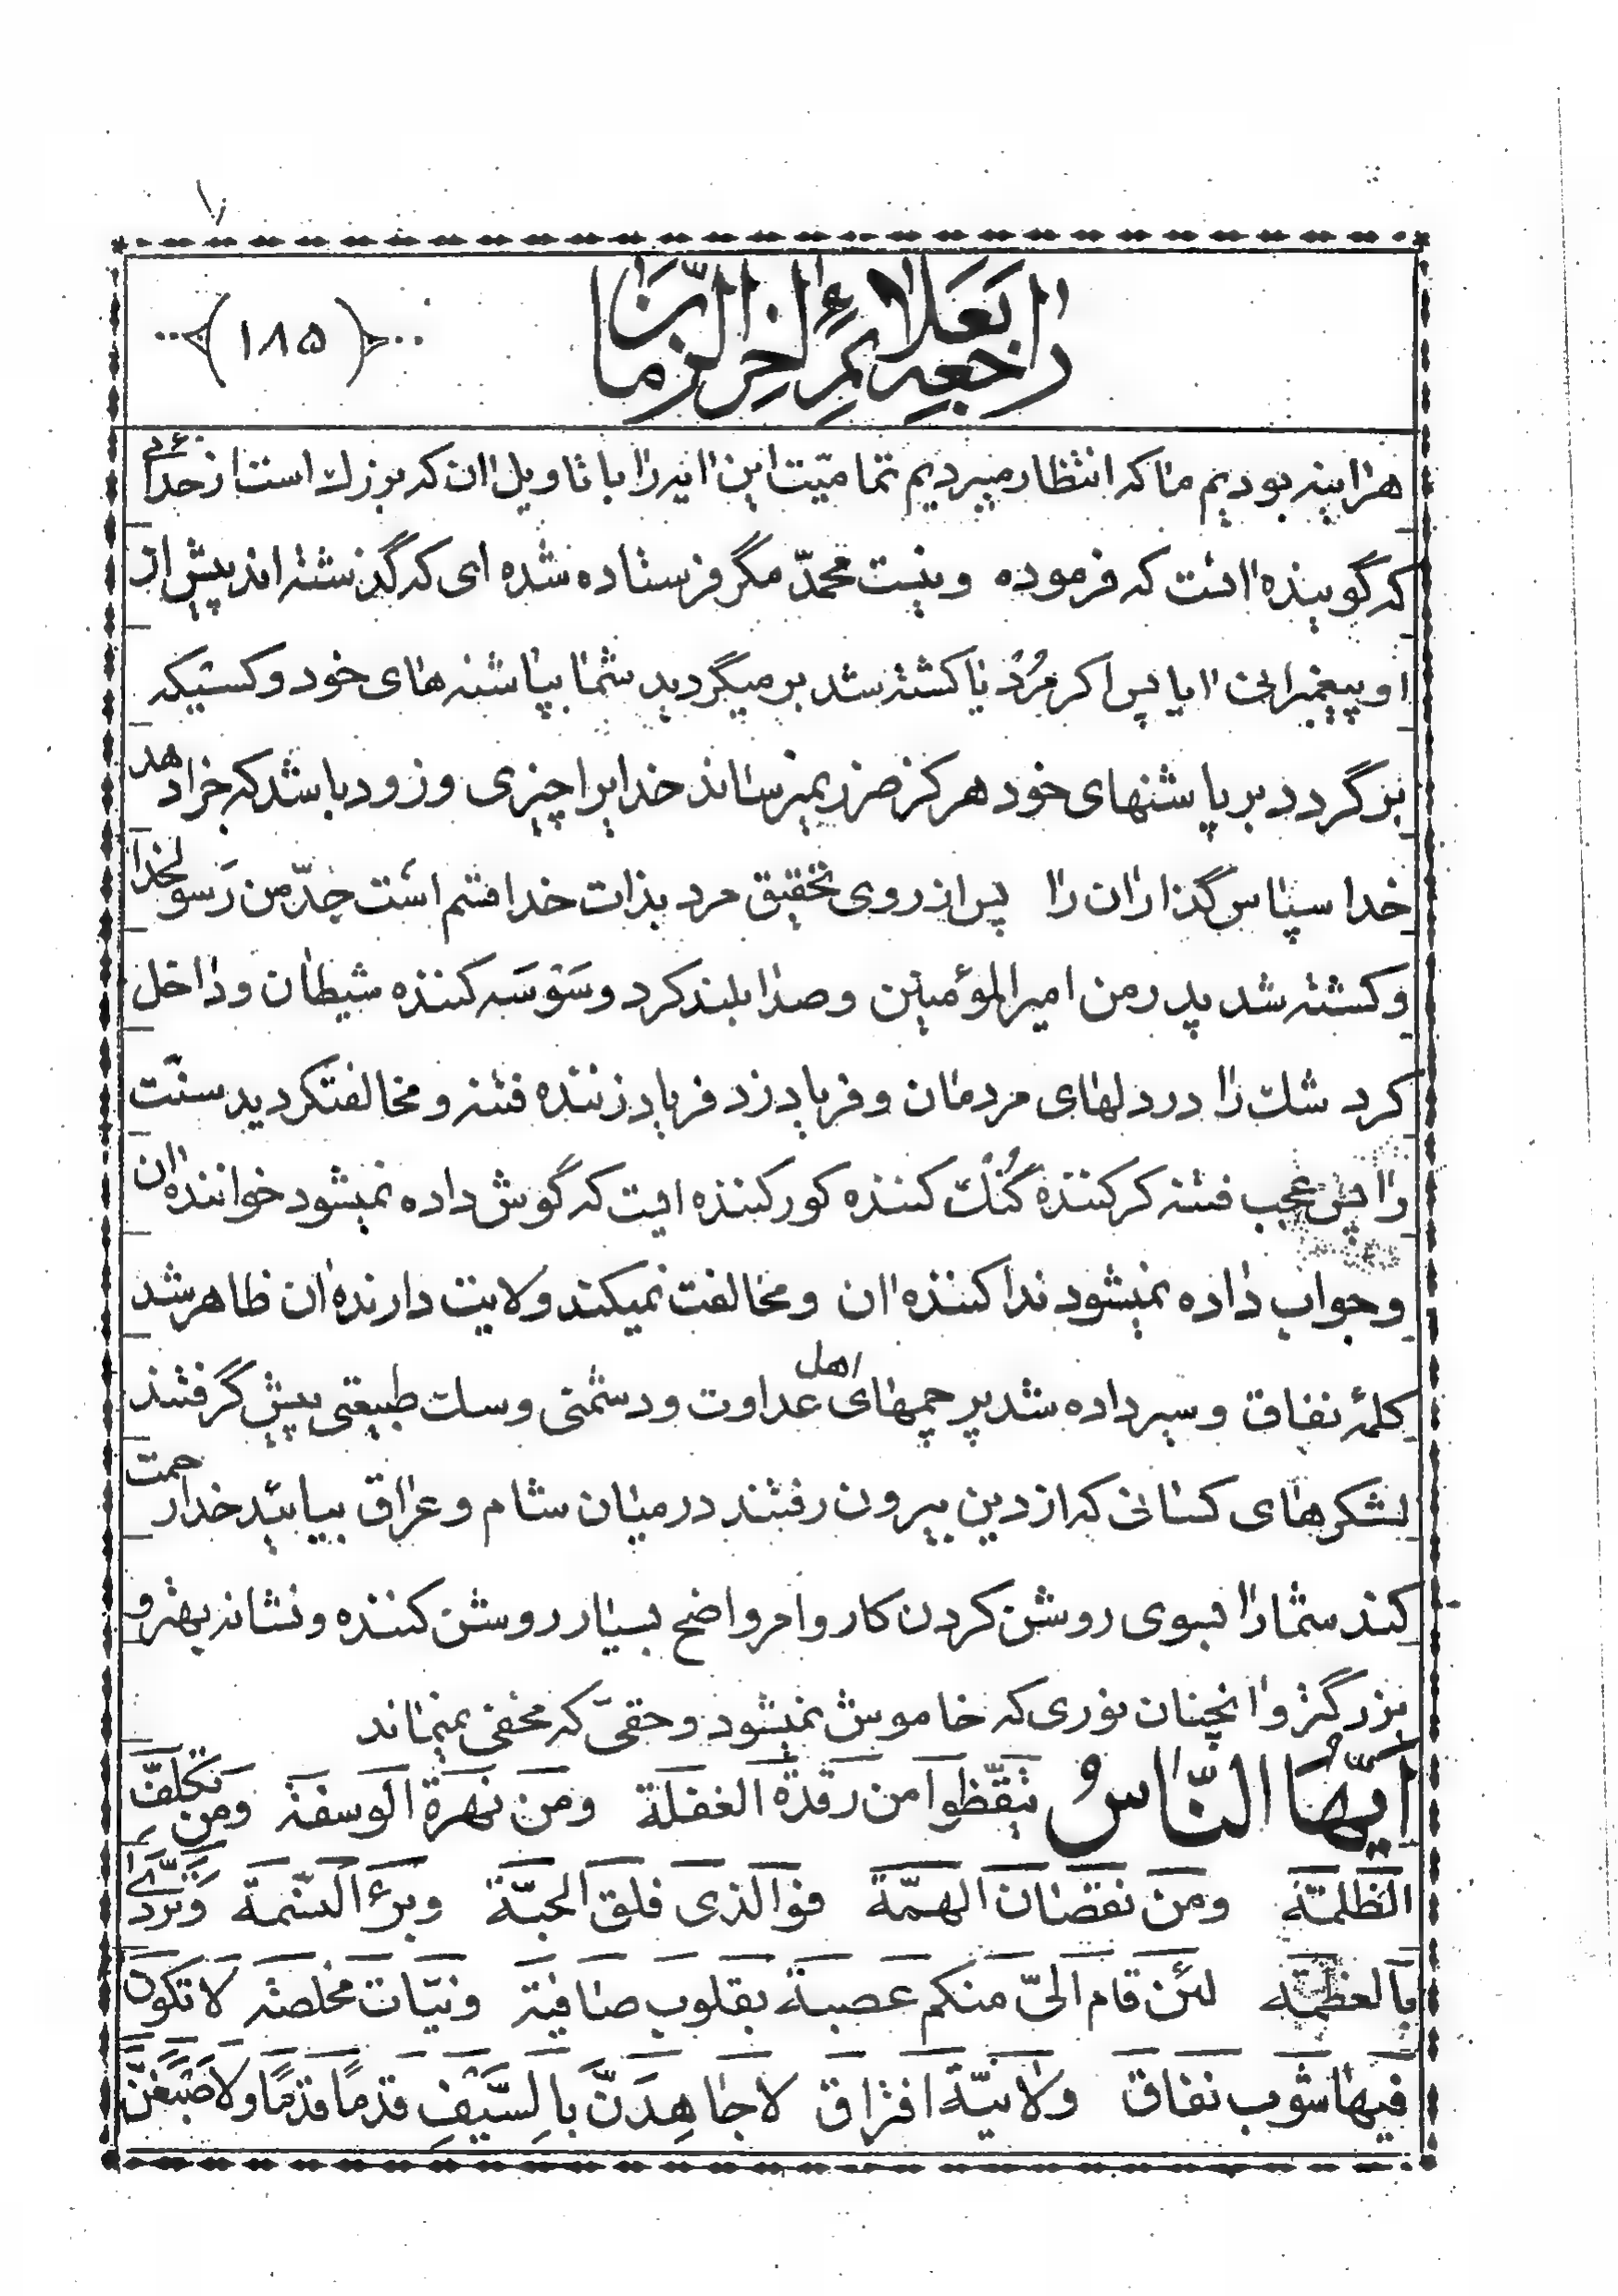 راجعه بعلائم اخر الزمان
(۱۸۵)
هراینه بودیم ما که انتظار میبردیم تمامیّت این ایه را با تاویل ان که بزرك است از خدائی
که گوینده است که فرموده و نیست محمّد مگر فرستاده شده ای که گذشته اند پیش از
او پیغمبرانی ایا پس اکر مُرد یا کشته شد بر میگردید شما بپاشنه های خود و کسیکه
بر گردد بر پاشنهای خود هرکز ضرر نمیرساند خدایرا چیزی و زود باشد که جزا دهد
خدا سپاس گذاران را پس از روی تحقیق مرد بذات خدا قسم است جدّ من رَسولخدا
و کشته شد پدر من امیرالمؤمنین و صدا بلند کرد وسَوسَه کننده شیطان و داخل
کرد شك را در دلهای مردمان و فریاد زد فریاد زننده فتنه و مخالفت کردید سنّت
را پس عجب فتنه کر کننده کُنك کننده کور کننده ایست که گوش داده نمیشود خواننده ان
و جواب داده نمیشود ندا کننده ان و مخالفت نمیکند ولایت دارنده ان ظاهر شد
کلمهٔ نفاق و سیر داده شد پرچمهای اهل عداوت و دشمنی و سلت طبیعتی پیش گرفتند
لشکرهای کسانی که از دین بیرون رفتند در میان شام و عراق بیائید خدا رحمت
کند شما را بسوی روشن کردن کار و امر واضح بسیار روشن کننده و نشاند بهتر و
بزرگتر و انچنان نوری که خاموش نمیشود و حقیّ که مخفی نمیماند
اَیُّهَا النّٰاسُ تیقّظوا من رقدة الغفلة ومن نهزة الوسنة ومن تکلّف
الظلمة ومن نقصان الهمّة فوالذی فلق الحبّة وبرء النسمة وتردّی
بالعظمة لئن قام الیّ منکم عصبة بقلوب صافیة ونیّات مخلصة لا تکون
فیها شوب نفاق ولا نیّة افتراق لاجاهِدَنَّ بِالسَّیفِ قدمًا قدمًا